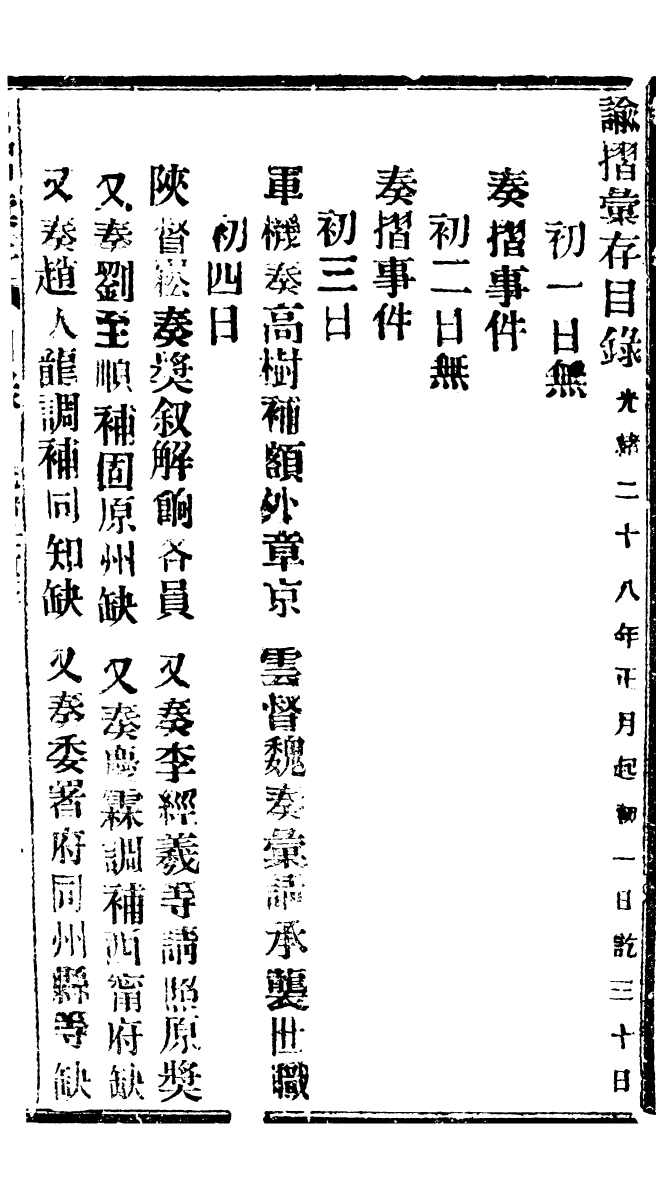 諭摺彙存目錄 光緒二十八年正月起初一日訖三十日
初一日無
奏摺事件
初二日無
奏摺事件
初三日
軍機奏高樹補額外章京 雲督魏奏彙請承襲世職
初四日
陝督崧奏獎叙解餉各員 又奏李經羲等請照原獎
又奏劉至順補固原州缺 又奏慶霖調補西甯府缺
又奏趙人龍調補同知缺 又奏委署府同州縣等缺